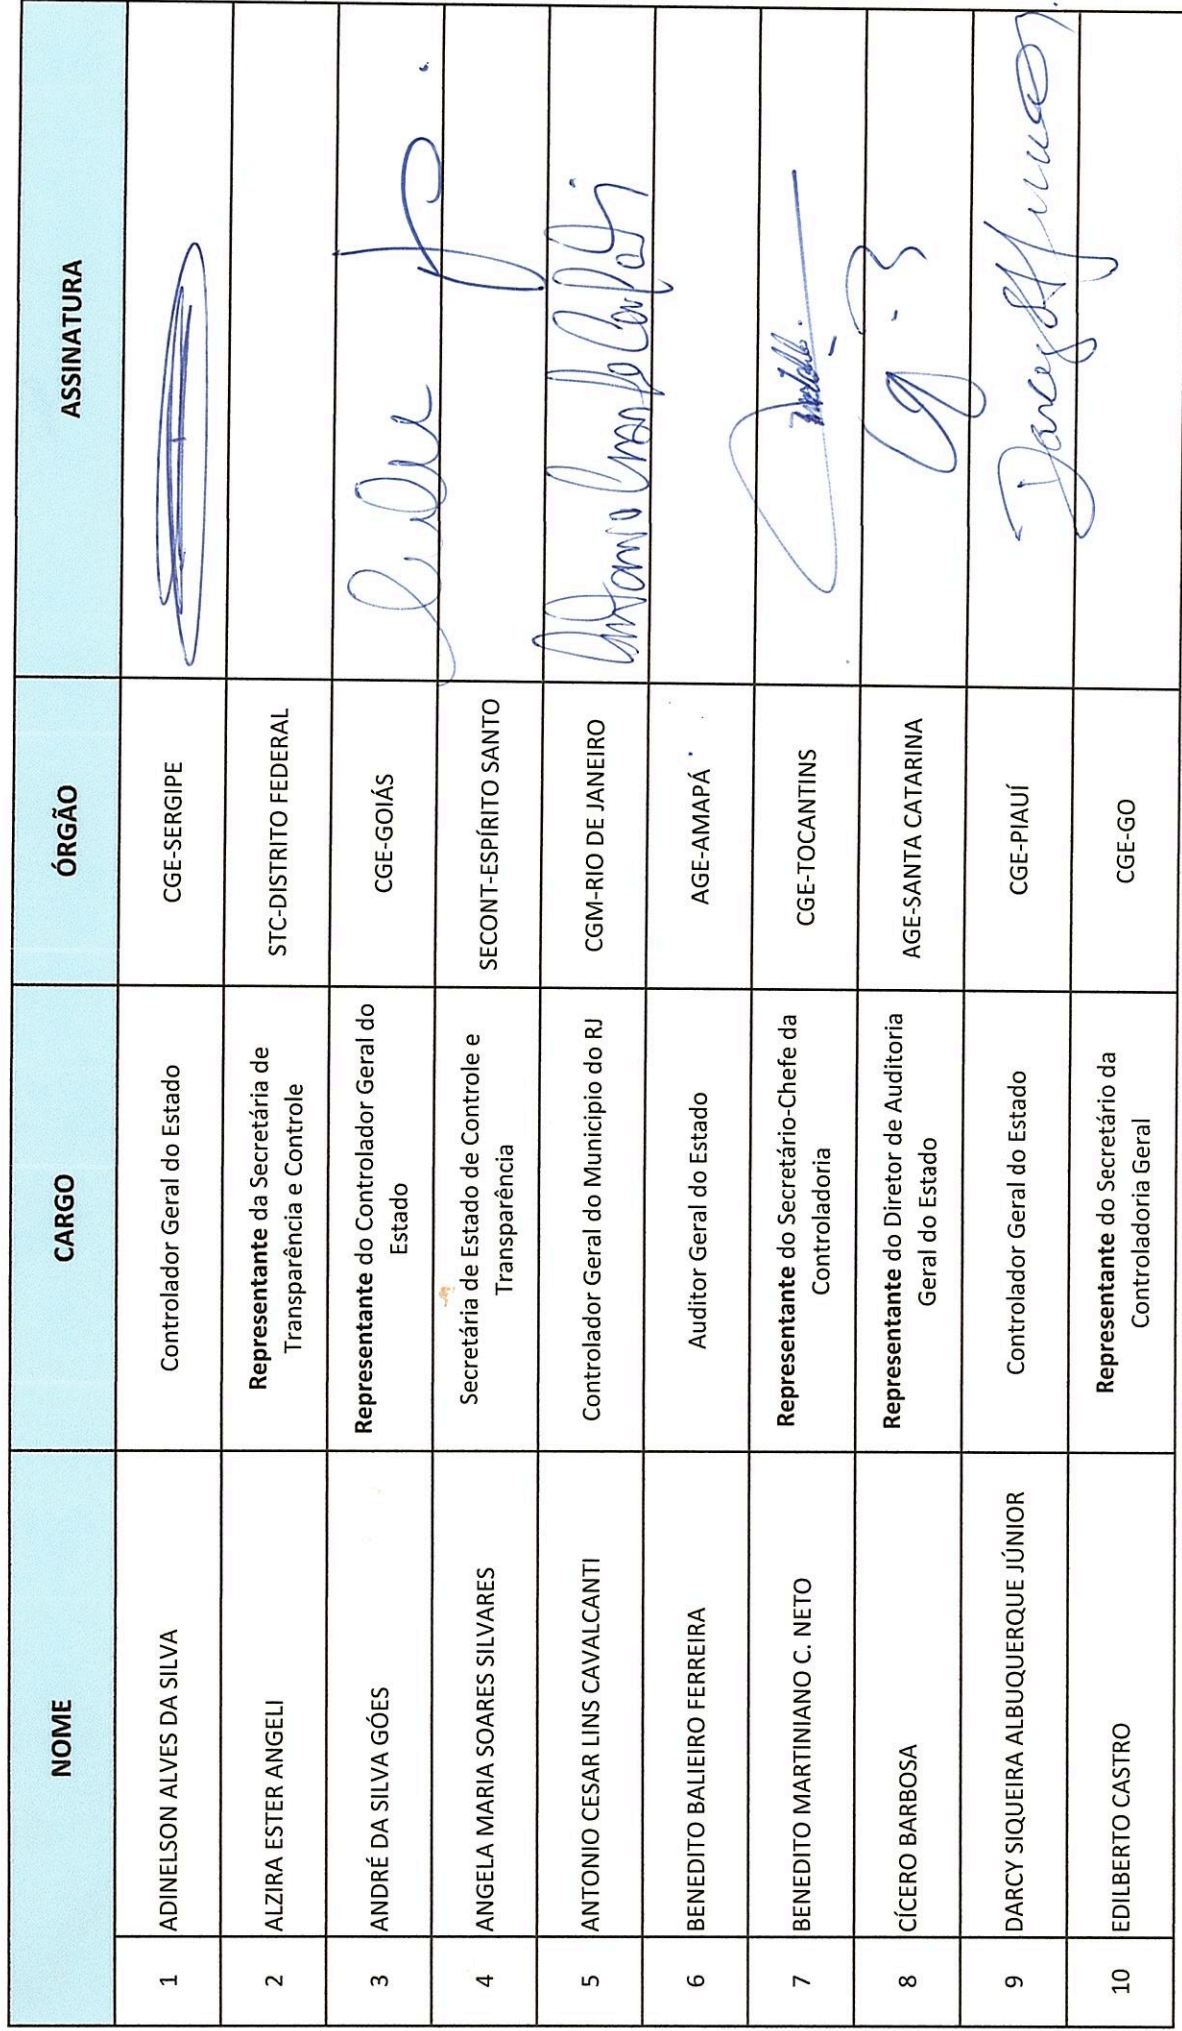 NOME CARGO ÓRGÃO ASSINATURA
1 ADINELSON ALVES DA SILVA Controlador Geral do Estado CGE-SERGIPE
2 ALZIRA ESTER ANGELI Representante da Secretária de
Transparência e Controle STC-DISTRITO FEDERAL
3 ANDRÉ DA SILVA GÓES Representante do Controlador Geral do
Estado CGE-GOIÁS
4 ANGELA MARIA SOARES SILVARES Secretária de Estado de Controle e
Transparência SECONT-ESPÍRITO SANTO
5 ANTONIO CESAR LINS CAVALCANTI Controlador Geral do Municipio do RJ CGM-RIO DE JANEIRO
6 BENEDITO BALIEIRO FERREIRA Auditor Geral do Estado AGE-AMAPÁ
7 BENEDITO MARTINIANO C. NETO Representante do Secretário-Chefe da
Controladoria CGE-TOCANTINS
8 CÍCERO BARBOSA Representante do Diretor de Auditoria
Geral do Estado AGE-SANTA CATARINA
9 DARCY SIQUEIRA ALBUQUERQUE JÚNIOR Controlador Geral do Estado CGE-PIAUÍ
10 EDILBERTO CASTRO Representante do Secretário da
Controladoria Geral CGE-GO